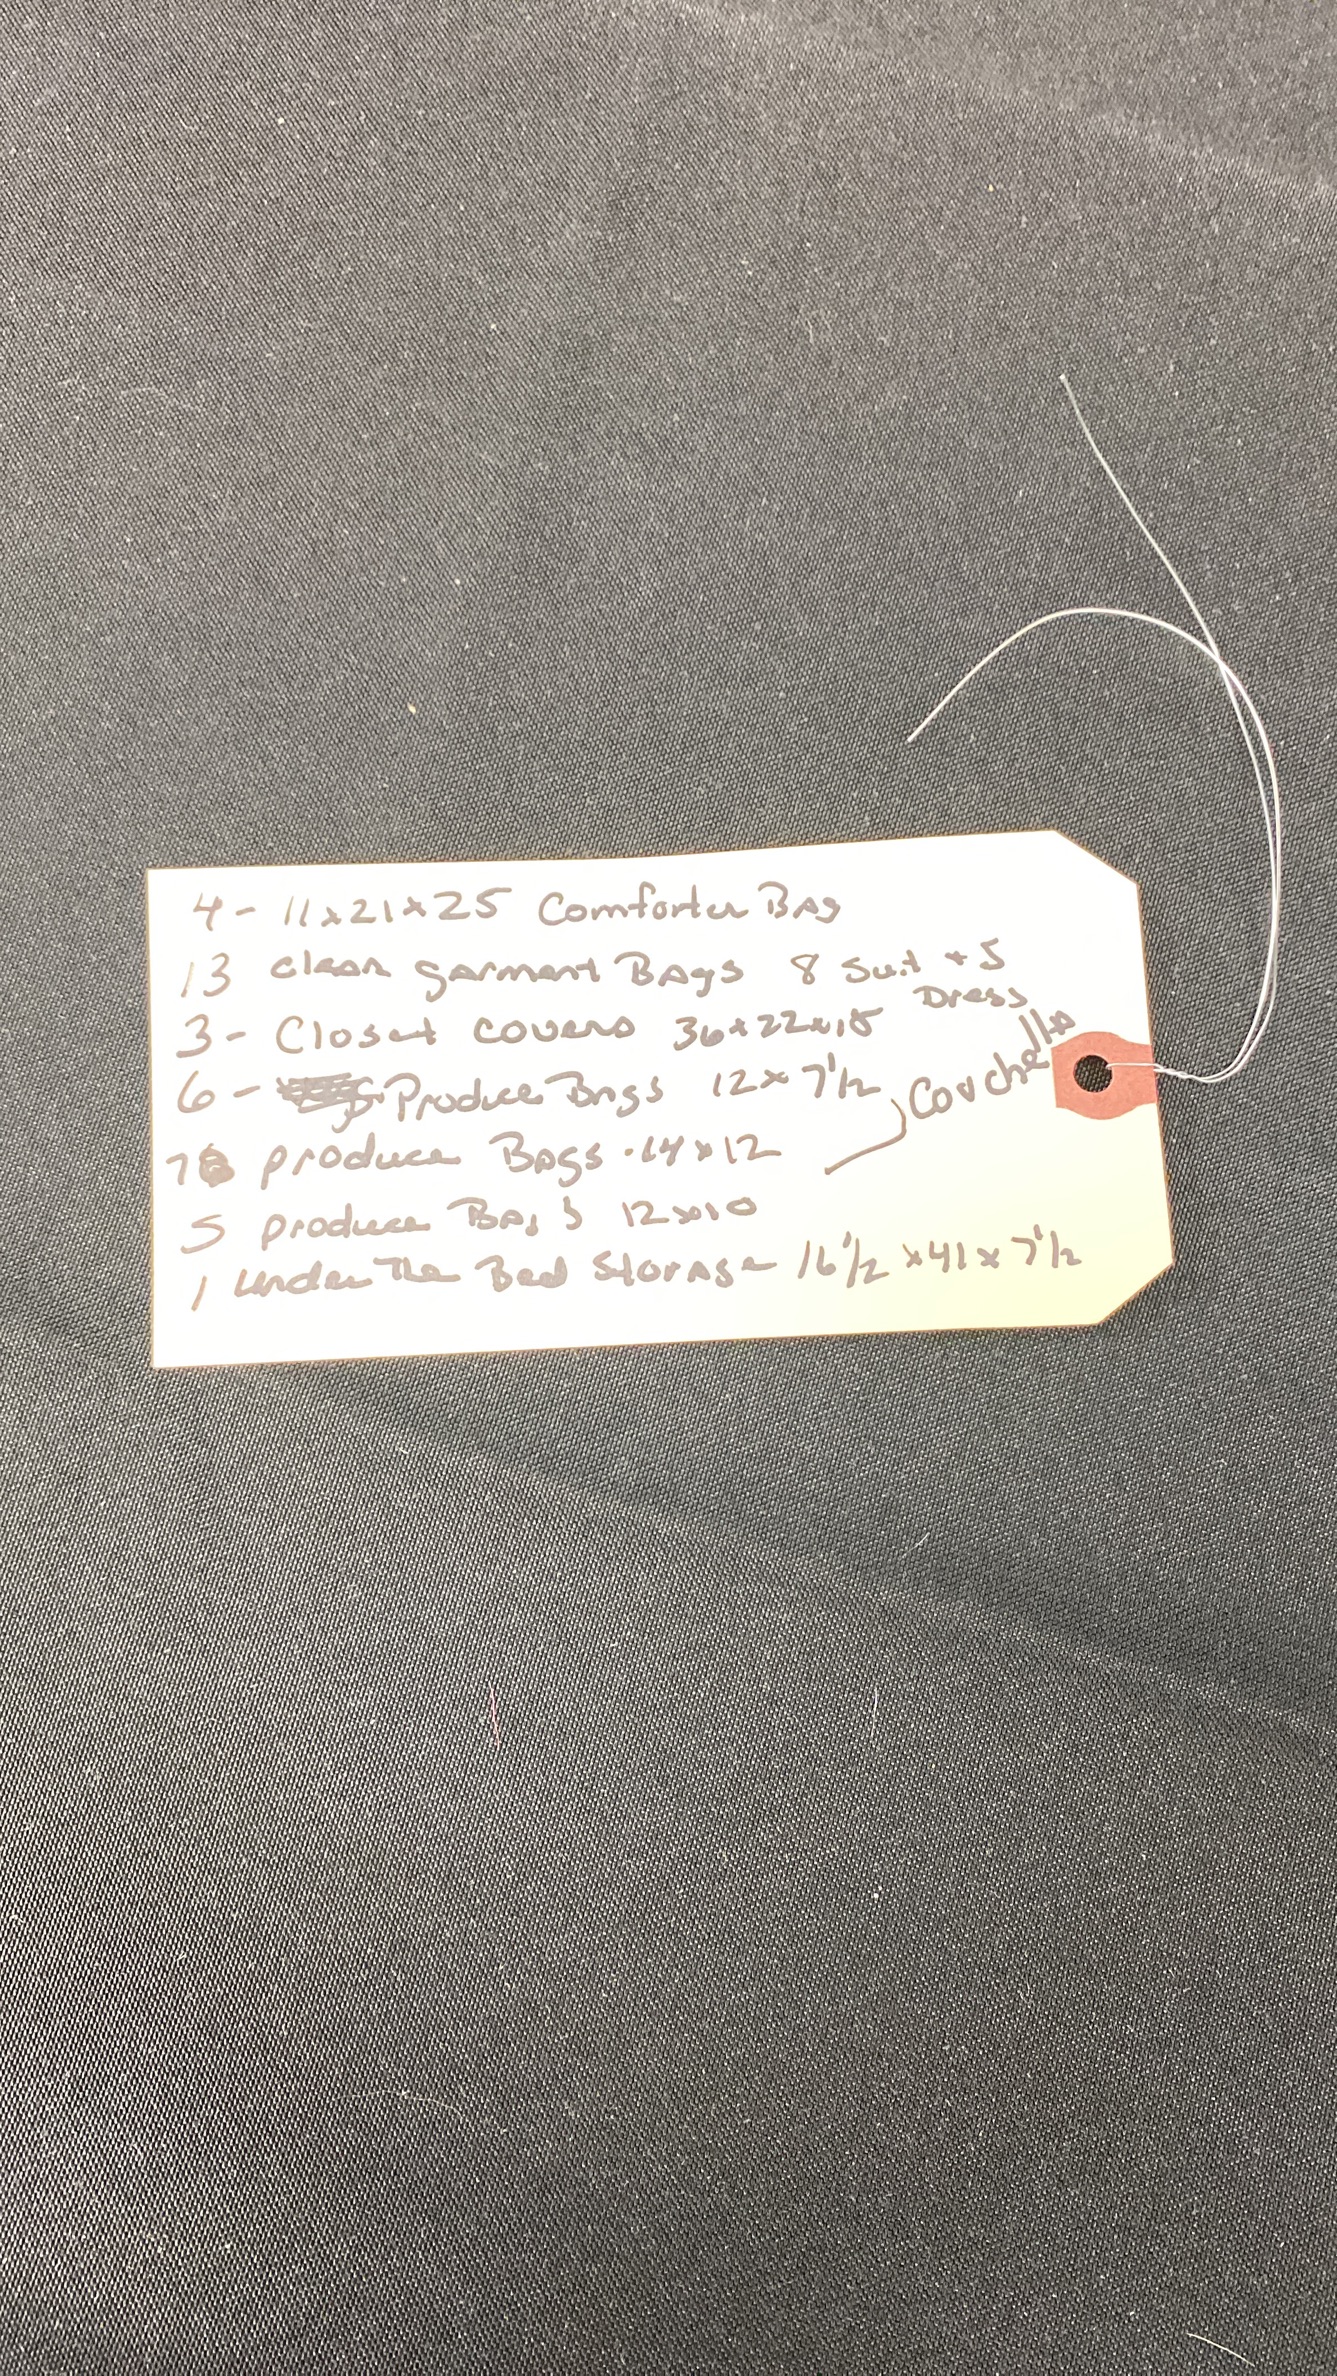 4 - 11x21x25 Comforter Bag
13 clear garment Bags 8 Suit + 5
Dress
3 - Closet covers 36x22x18
6 - Produce Bags 12 x 7 1/2
7 produce Bags - 14 x 12
5 produce Bags 12x10
1 under The Bed Storage 16 1/2 x 41 x 7 1/2